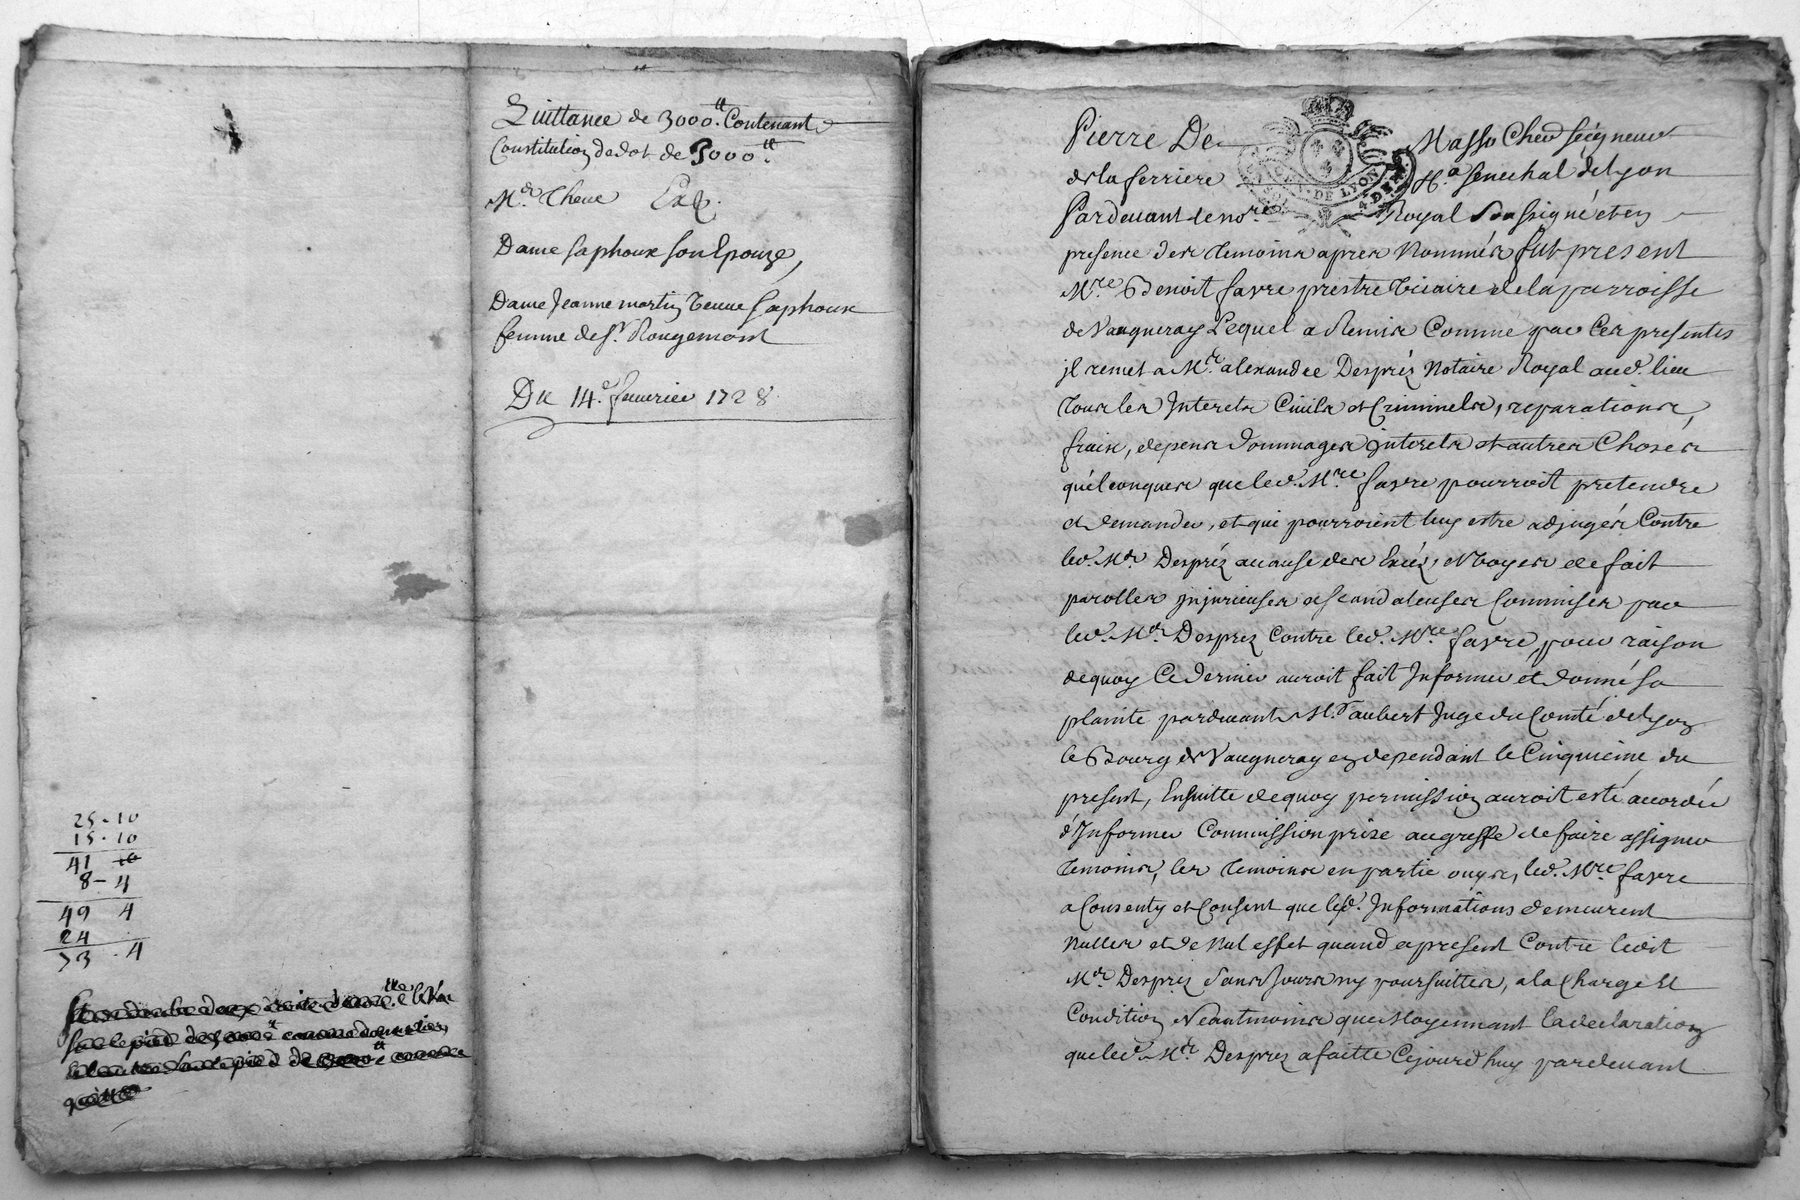 Quittance de 3000.ᵗᵗ Contenant
Constitution de dot de 3000ᵗᵗ.
Mᵈ. Theve Exp.
Dame Saphoux son Epouze,
Dame Jeanne martin veuve Saphoux
femme de Sʳ. Rougemont
Du 14.ᵉ fevrier 1728.
25 - 10
15 - 10
41 10
8 - 4
49 4
24
73 - 4
Pierre De Masso Chev seigneur
de la ferriere senechal de Lyon
DE LYON
Pardevant le noʳᵉ Royal Soussigné et en
presence des temoins apres Nommés fut present
Mʳᵉ. Benoit favre prestre vicaire de la parroisse
de Vaugneray Lequel a Remis Comme par Ces presentes
jl remet a Mᵉ. alexandre Desprez Notaire Royal aud. lieu
tous les Interets Civils et Criminels, reparations,
frais, depens dommages jnterets et autres Choses
quélconques que led. Mʳᵉ favre pourroit pretendre
et demander, et qui pourroient luy estre adjugés Contre
led. Mᵉ Despréz acause des Excéz, et voyes de fait
parolles jnjurieuses et scandaleuses Commises par
led. Mᵉ. Desprez Contre led. Mʳᵉ favre, pour raison
de quoy Ce dernier auroit fait Informer et donné sa
plainte pardevant Mʳ. aubert Juge du Comté de Lyon
le Bourg de Vaugneray en dependant le Cinquieme du
present, Ensuitte de quoy permission auroit esté accordée
d'Informer Commission prize au greffe de faire assigner
temoins, les temoins en partie ouys, led. Mʳᵉ favre
a Consenty et Consent que lesd. Informations demeurent
nulles et de Nul effet quand a present Contre ledit
Mᵉ Desprez Sans pouruittes, a la Charge Et
Condition Neantmoins que Moyennant la declaration
que led. Mᵉ. Desprez a faitte Cejourd'huy pardevant